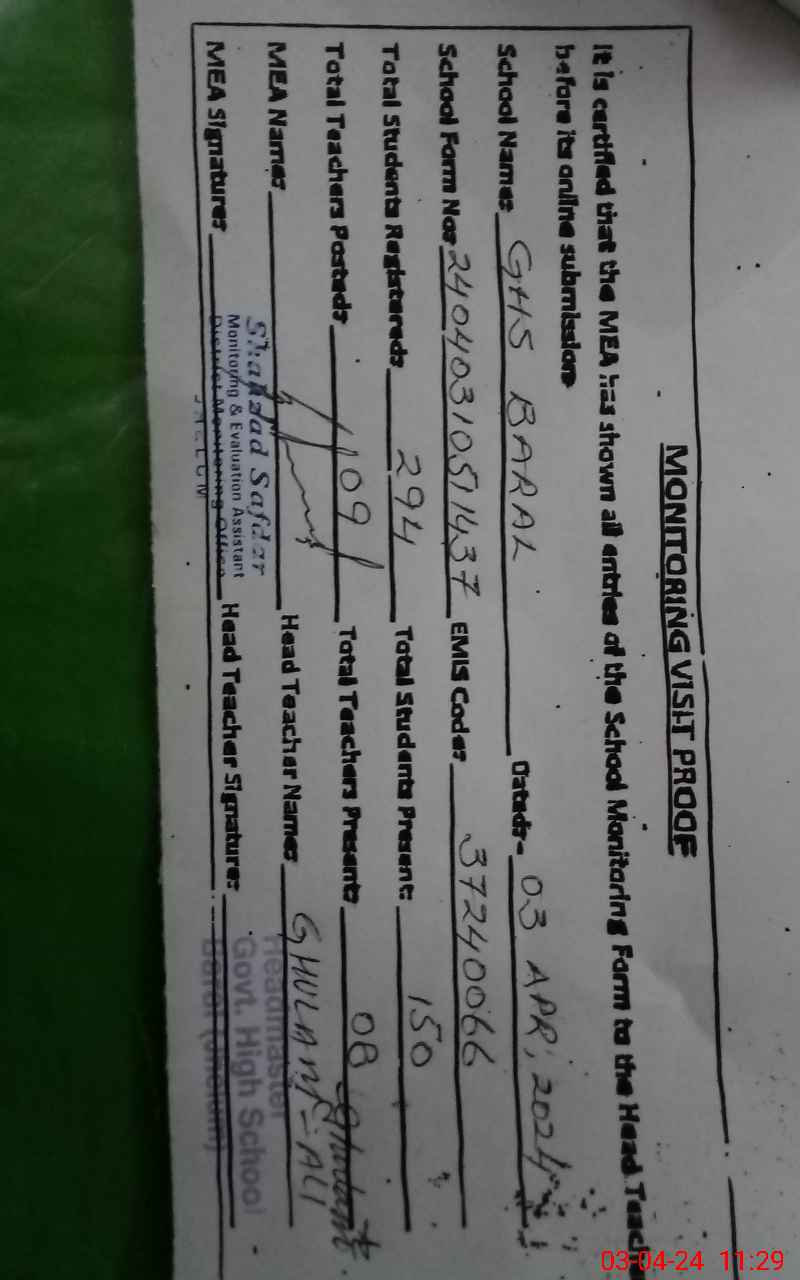 MONITORING VISIT PROOF
It is certified that the MEA has shown all entries of the School Monitoring Form to the Head Teacher
before its online submission.
School Name: GHS BARAL Dated:- 03 APR, 2024
School Form No: 2404031051437 EMIS Code: 37240066
Total Students Registered: 294 Total Students Present: 150
Total Teachers Posted: 09 Total Teachers Present: 08
MEA Name: Head Teacher Name: GHULAM - ALI
Shahzad Safdar
Monitoring & Evaluation Assistant
District Monitoring Office
JHELUM
MEA Signature: Head Teacher Signature:
Headmaster
Govt. High School
Baral (Jhelum)
03-04-24 11:29